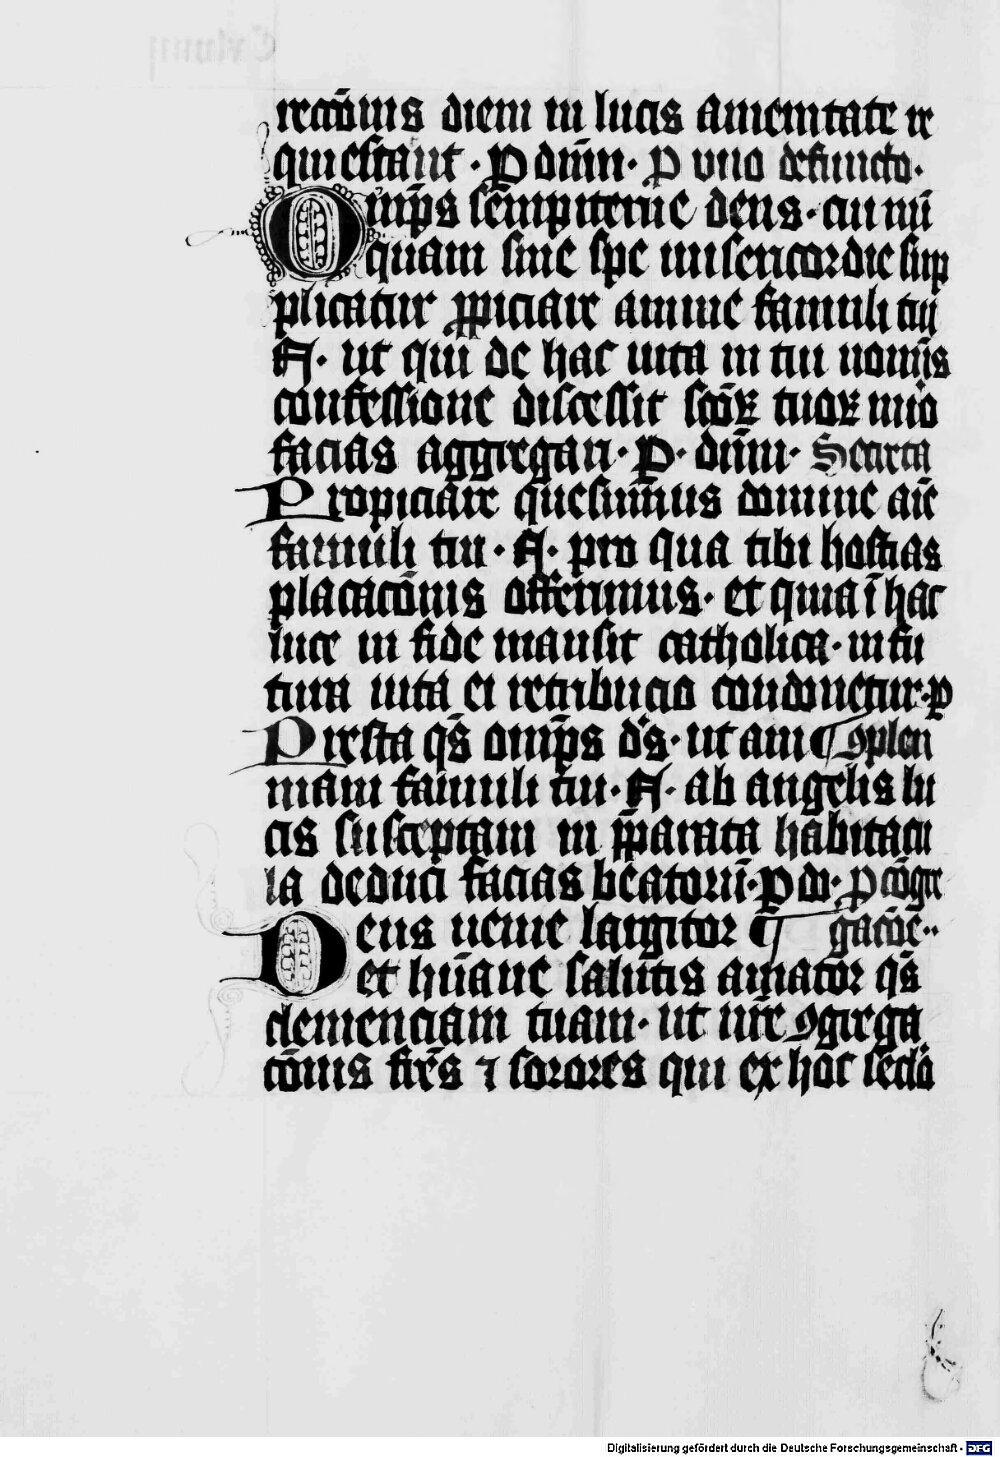 rectōnis diem in lucis amenitate re
quiescant · P dn̄m · p uno defuncto ·
Omp̄s sem̄piterne deus · cui nū
quam sine spe misericordie sup
plicatur ꝓpiciare anime famuli tui
N · ut qui de hac uita in tui nomīs
confessione discessit scōꝝ tuoꝝ nūo
facias aggregari · P · dn̄m · Secreta
Propiciare quesumus domine aīe
famuli tui · N · pro qua tibi hostias
placacōnis offerimus · et quia ī hac
luce in fide mansit catholica · in fu
tura uita ei retribucio condonetur · p
Presta qs̄ omp̄s ds̄ · ut ani ꝯplen
mam famuli tui · N · ab angelis lu
cis susceptam in p̄parata habitacu
la deduci facias beatorum · P do · p cōgre
Deus uenie largitor gacōe ··
et hūane salutis amator qs̄
clemenciam tuam · ut nr̄e ꝯgrega
cōnis frēs ⁊ sorores qui ex hoc seclo
Digitalisierung gefördert durch die Deutsche Forschungsgemeinschaft - DFG